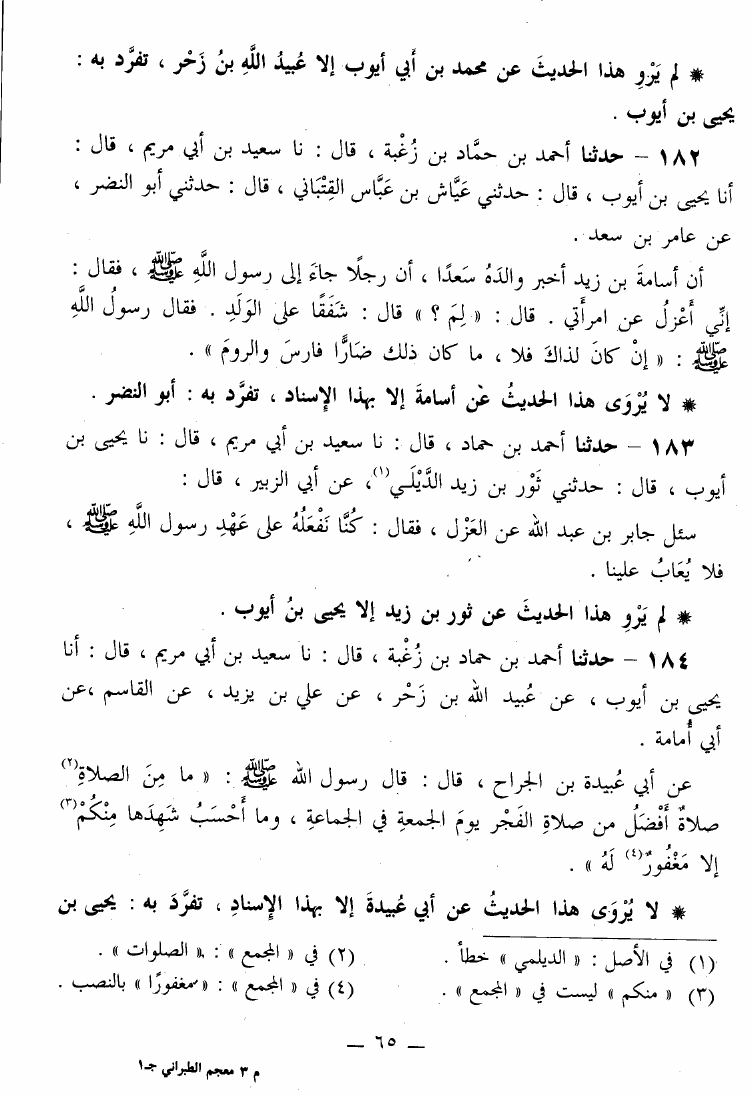 * لم يَرْوِ هذا الحديثَ عن محمد بن أبي أيوب إلا عُبيدُ اللَّهِ بنُ زَحْر ، تفرَّد به :
يحيى بن أيوب .
١٨٢ – حدثنا أحمد بن حمَّاد بن زُغْبة ، قال : نا سعيد بن أبي مريم ، قال :
أنا يحيى بن أيوب ، قال : حدثني عَيَّاش بن عَبَّاس القِتْبَاني ، قال : حدثني أبو النضر ،
عن عامر بن سعد .
أن أسامةَ بن زيد أخبر والدَهُ سَعدًا ، أن رجلًا جاءَ إلى رسول اللَّهِ ﷺ ، فقال :
إنِّي أَعْزِلُ عن امرأَتي . قال : « لِمَ ؟ » قال : شَفَقًا على الوَلَدِ . فقال رسولُ اللَّهِ
ﷺ : « إنْ كانَ لذاكَ فلا ، ما كان ذلك ضَارًّا فارسَ والرومَ » .
* لا يُرْوَى هذا الحديثُ عن أسامةَ إلا بهذا الإسناد ، تفرَّد به : أبو النضر .
١٨٣ – حدثنا أحمد بن حماد ، قال : نا سعيد بن أبي مريم ، قال : نا يحيى بن
أيوب ، قال : حدثني ثَوْر بن زيد الدَّيْلَـي(١)، عن أبي الزبير ، قال :
سئل جابر بن عبد الله عن العَزْل ، فقال : كُنَّا نَفْعَلُهُ على عَهْدِ رسول اللَّهِ ﷺ ،
فلا يُعَابُ علينا .
* لم يَرْوِ هذا الحديثَ عن ثور بن زيد إلا يحيى بنُ أيوب .
١٨٤ – حدثنا أحمد بن حماد بن زُغْبة ، قال : نا سعيد بن أبي مريم ، قال : أنا
يحيى بن أيوب ، عن عُبيد الله بن زَحْر ، عن علي بن يزيد ، عن القاسم ،عن
أبي أُمامة .
عن أبي عُبيدة بن الجراح ، قال : قال رسول الله ﷺ : « ما مِنَ الصلاةِ(٢)
صلاةٌ أَفْضَلُ من صلاةِ الفَجْر يومَ الجمعةِ في الجماعةِ ، وما أَحْسَبُ شَهِدَها مِنْكُمْ(٣)
إلا مَغْفُورٌ(٤) لَهُ » .
* لا يُرْوَى هذا الحديثُ عن أبي عُبيدةَ إلا بهذا الإسنادِ ، تفرَّدَ به : يحيى بن
(١) في الأصل : « الديلمي » خطأ .
(٢) في « المجمع » : « الصلوات » .
(٣) « منكم » ليست في « المجمع » .
(٤) في « المجمع » : « مغفورًا » بالنصب .
— ٦٥ —
م ٣ معجم الطبراني جـ١